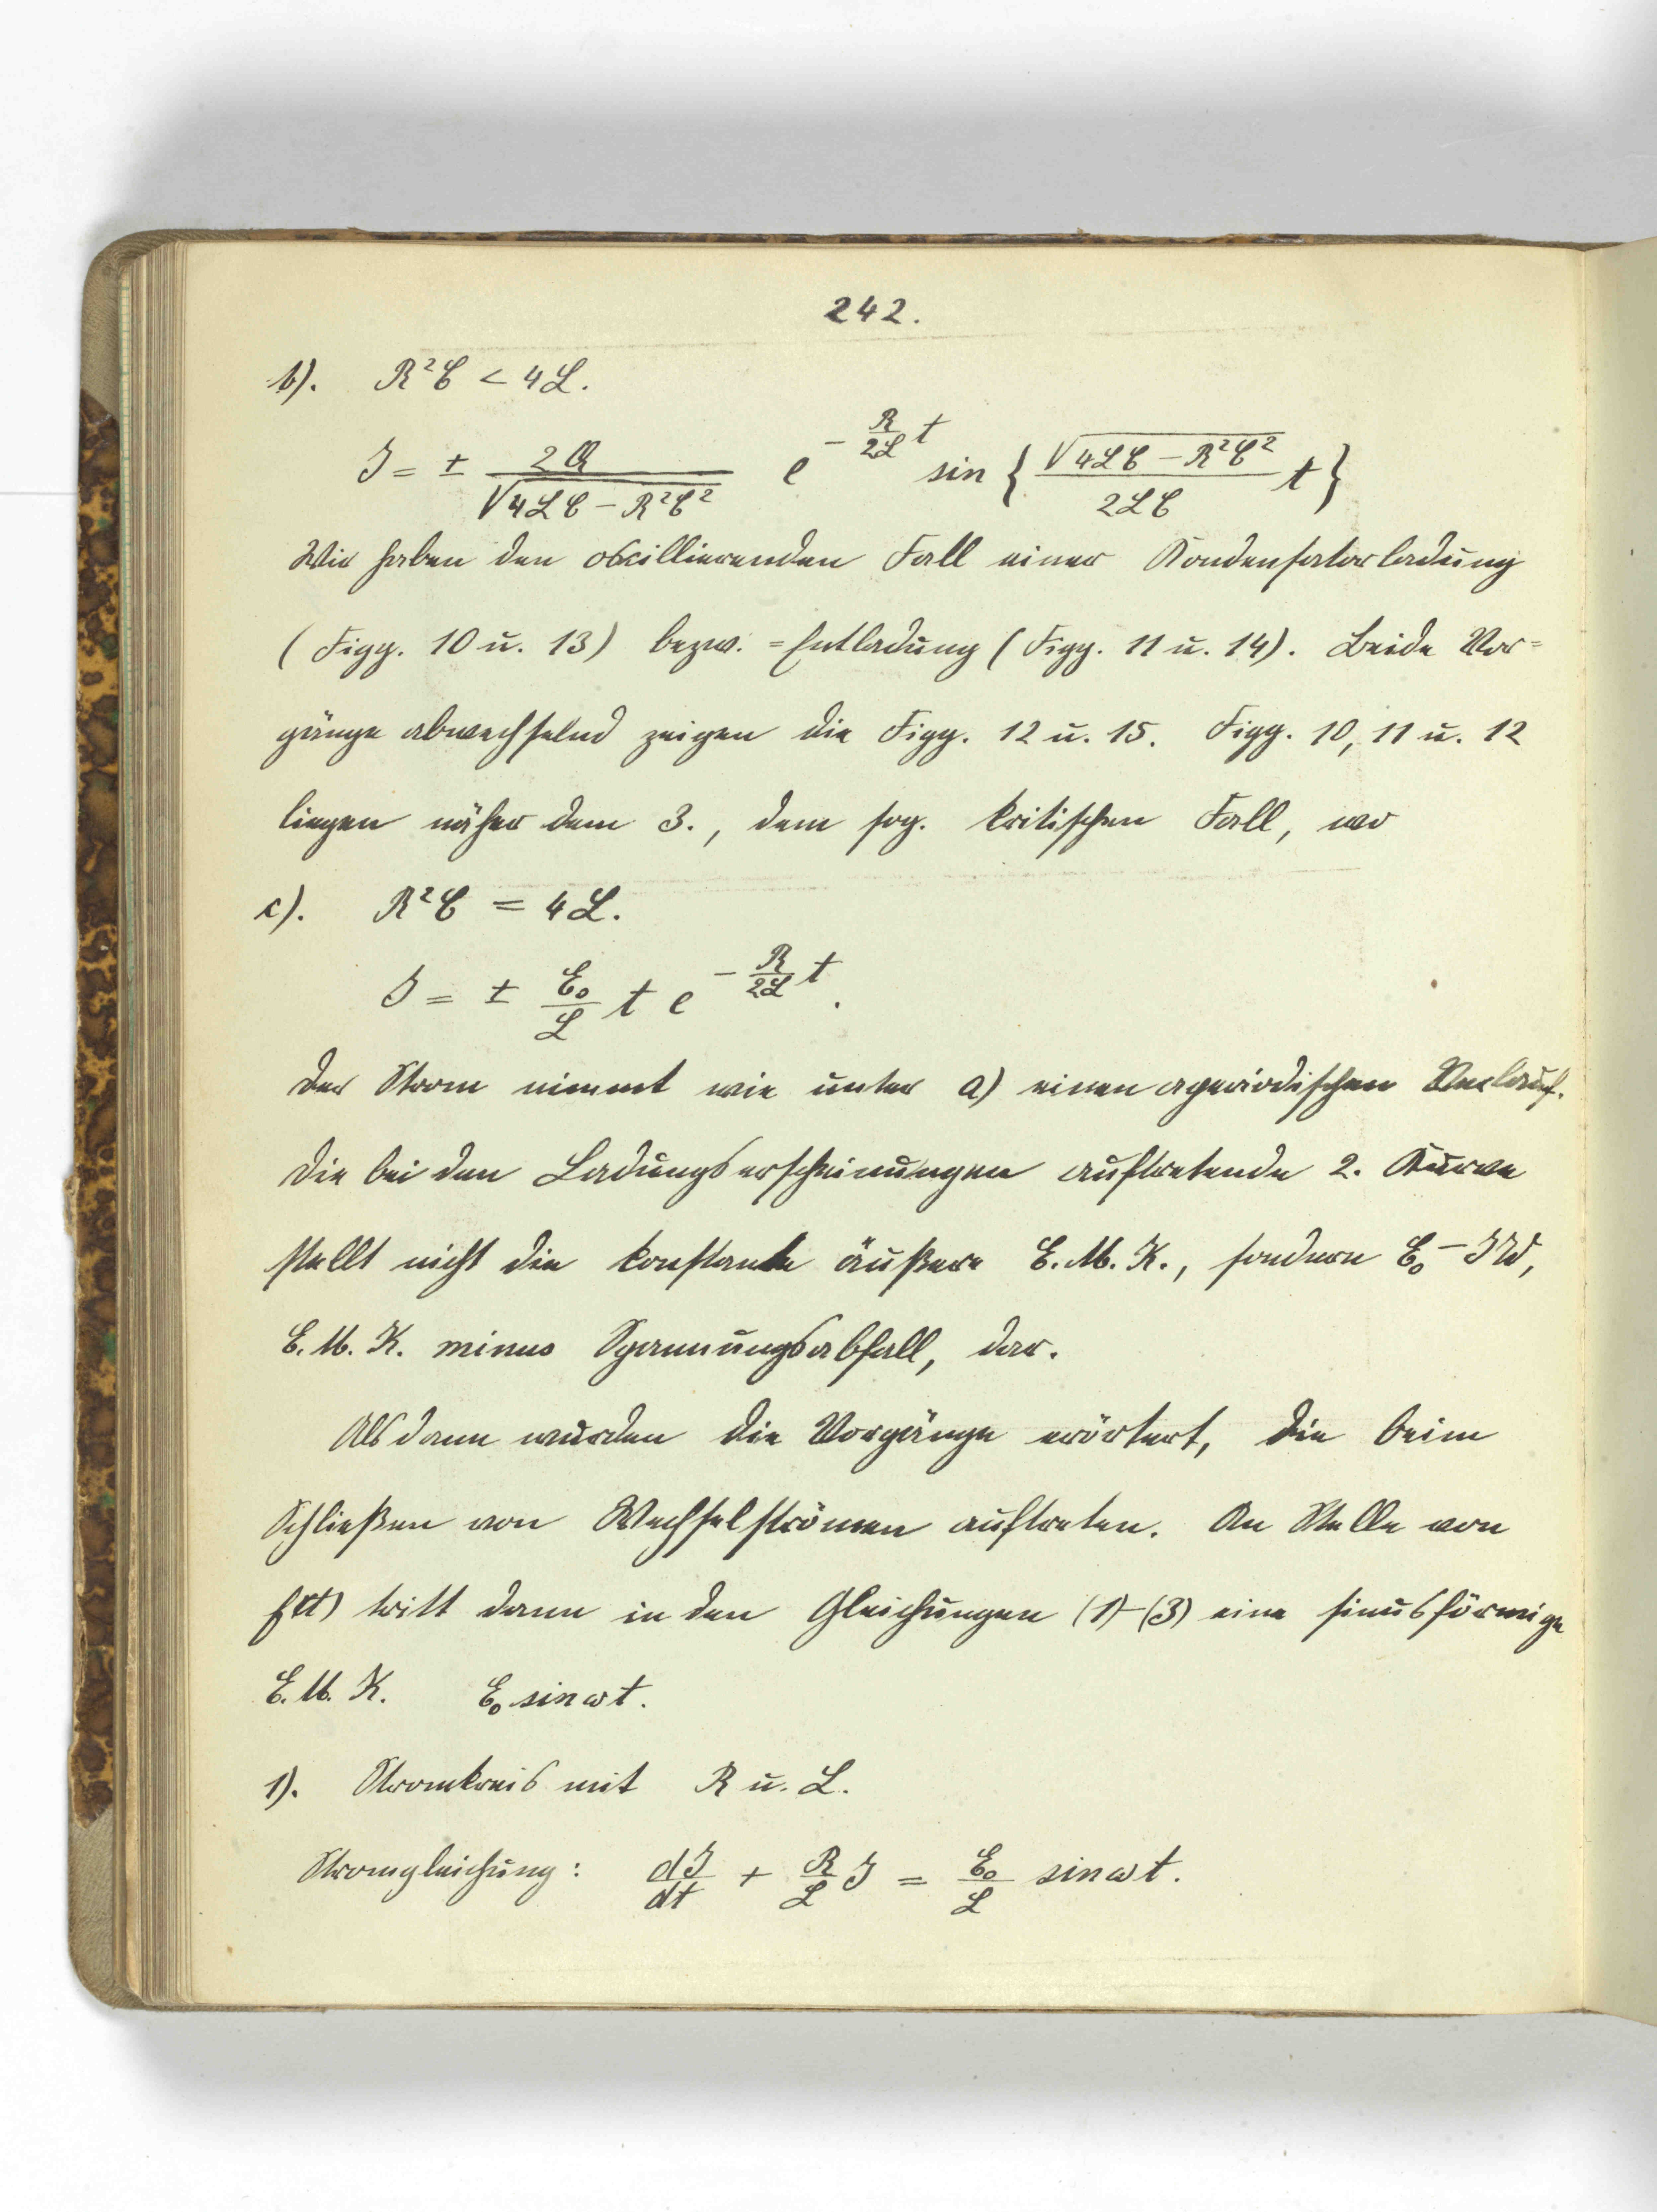 242.
b). R²C < 4L.
J = ± 2Q / √(4LC − R²C²) e^(− R/2L t) sin { √(4LC − R²C²) / 2LC t }
Wir haben den oscillierenden Fall einer Kondensatorladung
(Figg. 10 u. 13) bezw. =Entladung (Figg. 11 u. 14). Beide Vor=
gänge abwechselnd zeigen die Figg. 12 u. 15. Figg. 10, 11 u. 12
liegen näher dem 3., dem sog. kritischen Fall, wo
c). R²C = 4L.
J = ± E₀/L t e^(− R/2L t).
Der Strom nimmt wie unter a) einen aperiodischen Verlauf.
Die bei den Ladungserscheinungen auftretende 2. Kurve
stellt nicht die konstante äußere E.M.K., sondern E₀ − JW,
E.M.K. minus Spannungsabfall, dar.
Alsdann wurden die Vorgänge erörtert, die beim
Schließen von Wechselströmen auftreten. An Stelle von
f(t) tritt dann in den Gleichungen (1)-(3) eine sinusförmige
E.M.K. E₀ sin ωt.
1). Stromkreis mit R u. L.
Stromgleichung: dJ/dt + R/L J = E₀/L sin ωt.